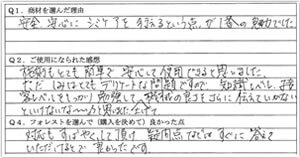 Q1．商材を選んだ理由
安全、安心に シミケアを行えるという点が1番の魅力でした
Q2．ご使用になられた感想
施術もとても簡単で安心して使用できると思いました。
ただ しみはとてもデリケートな問題ですので 知識レベル、接
客レベルをしっかり勉強して、機械の良さをさらに伝えていかない
といけないな〜と思いました。
Q4．フォレストを選んで（購入を決めて）良かった点
対応もすばやくして頂け 疑問点などは すぐに答えて
いただけるので 良かったです。